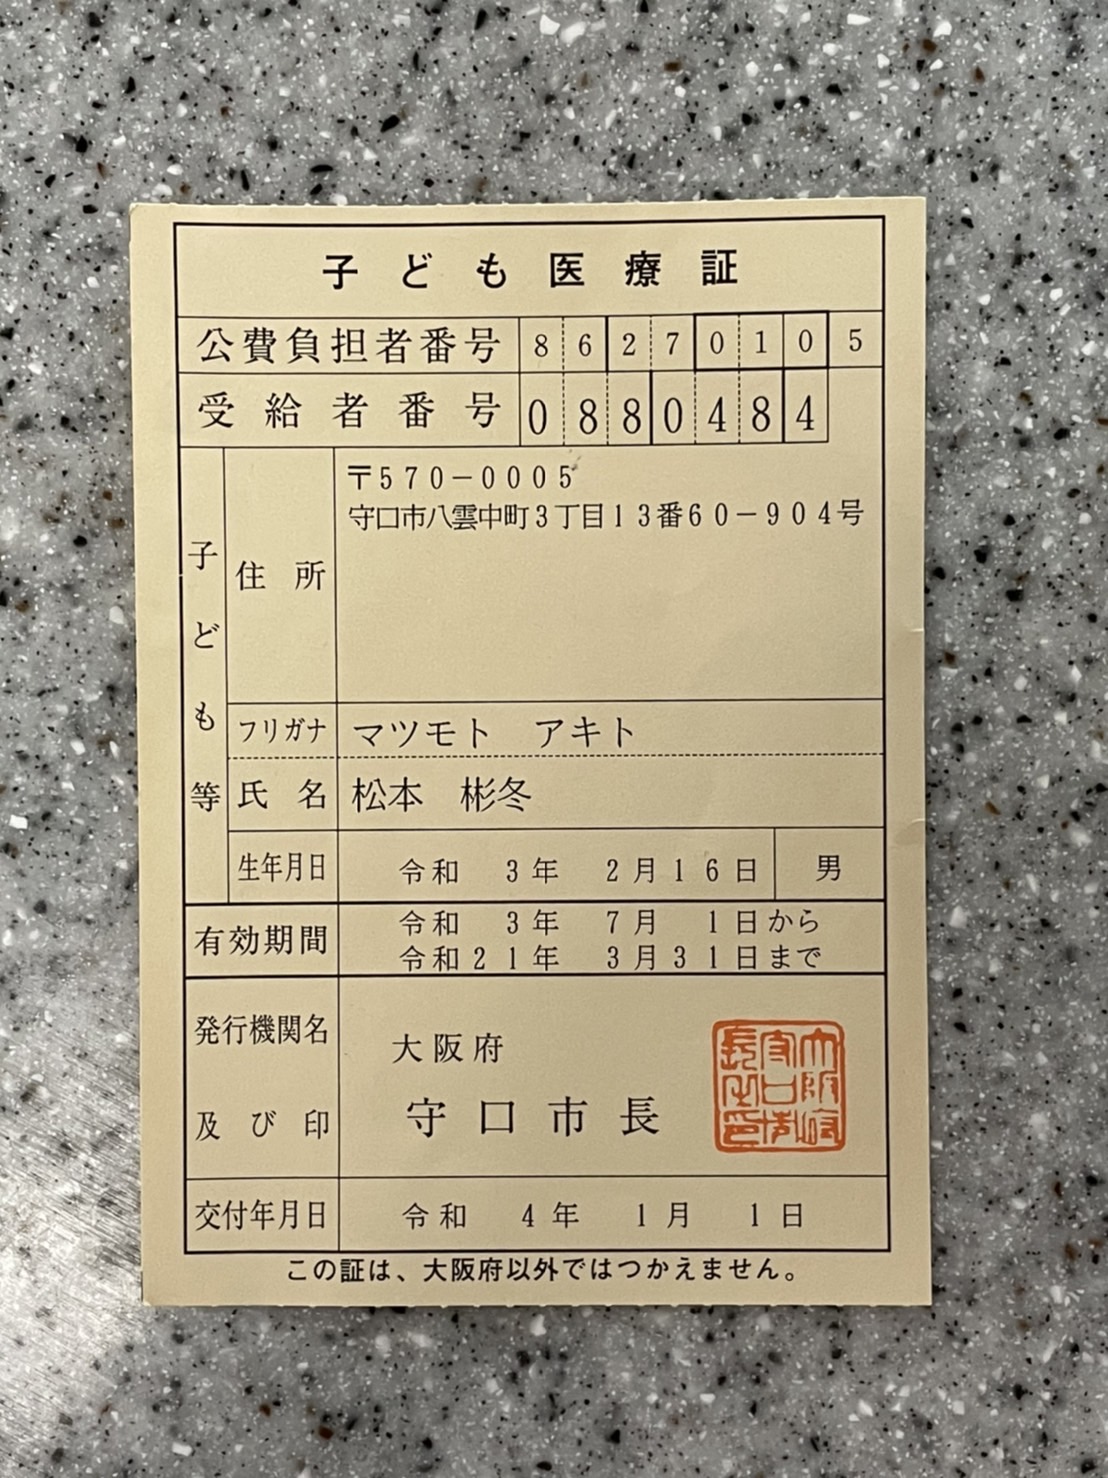 子ども医療証
公費負担者番号 86270105
受給者番号 0880484
子ども等
住所
〒570-0005
守口市八雲中町3丁目13番60-904号
フリガナ マツモト アキト
氏名 松本 彬冬
生年月日 令和 3年 2月16日 男
有効期間
令和 3年 7月 1日から
令和21年 3月31日まで
発行機関名
及び印
大阪府
守口市長
大阪府
守口市
長之印
交付年月日 令和 4年 1月 1日
この証は、大阪府以外ではつかえません。